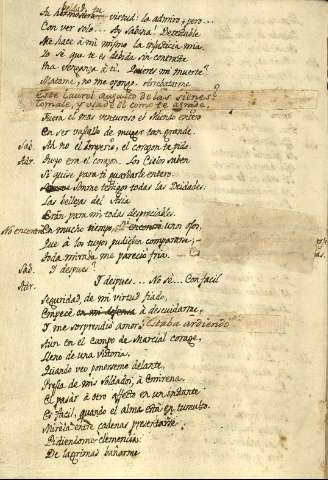 Su hermosura, virtud: la admiro, pero...
Con ver solo... Ay Sabina! Detestable
Me hace à mi mismo la injusticia mia.
Yo sé que te es debida sin contraste
Una venganza à ti. Quieres mi muerte?
Matame, no me opongo. Arrebatarme
Este Laurel augusto de las sienes?
Tomale, y usad el como te agrade.
Fuera el orbe venturoso el Mundo entero
En ser vasallo de muger tan grande.
Sab. Ah no el Imperio, el corazon te pido.
Adr. Tuyo era el corazon. Los Cielos saben
Si quise para ti guardarle entero.
Sonme testigos todas las Deidades.
Las bellezas del Asia
Eran para mi todas despreciables.
No encontré En mucho tiempo unos ojos,
Que à los tuyos pudiesen compararse;
Toda mirada me parecio fria.
Sab. Y despues?
Adr. Y despues... No sé... Con facil
Seguridad, de mi virtud fiado,
Empecé à descuidarme,
Y me sorprendió amor. Estaba ardiendo
Aun en el campo de Marcial corage,
Lleno de una victoria,
Quando veo ponerme delante,
Presa de mis soldados, à Emirena.
El pasar à otro afecto en un instante
Es facil, quando el alma está en tumulto.
Mirela entre cadenas presentarse
Pidiendome clemencia:
De lagrimas bañarme